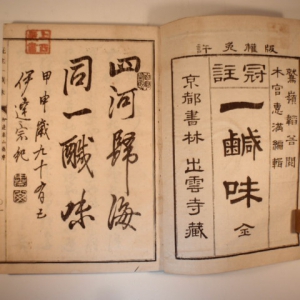 版權免許
木宮惠滿編輯
冠註一鹹味 全
京都書林 出雲寺藏
四河歸海
同一鹹味
甲申歳九十有三
伊達宗紀